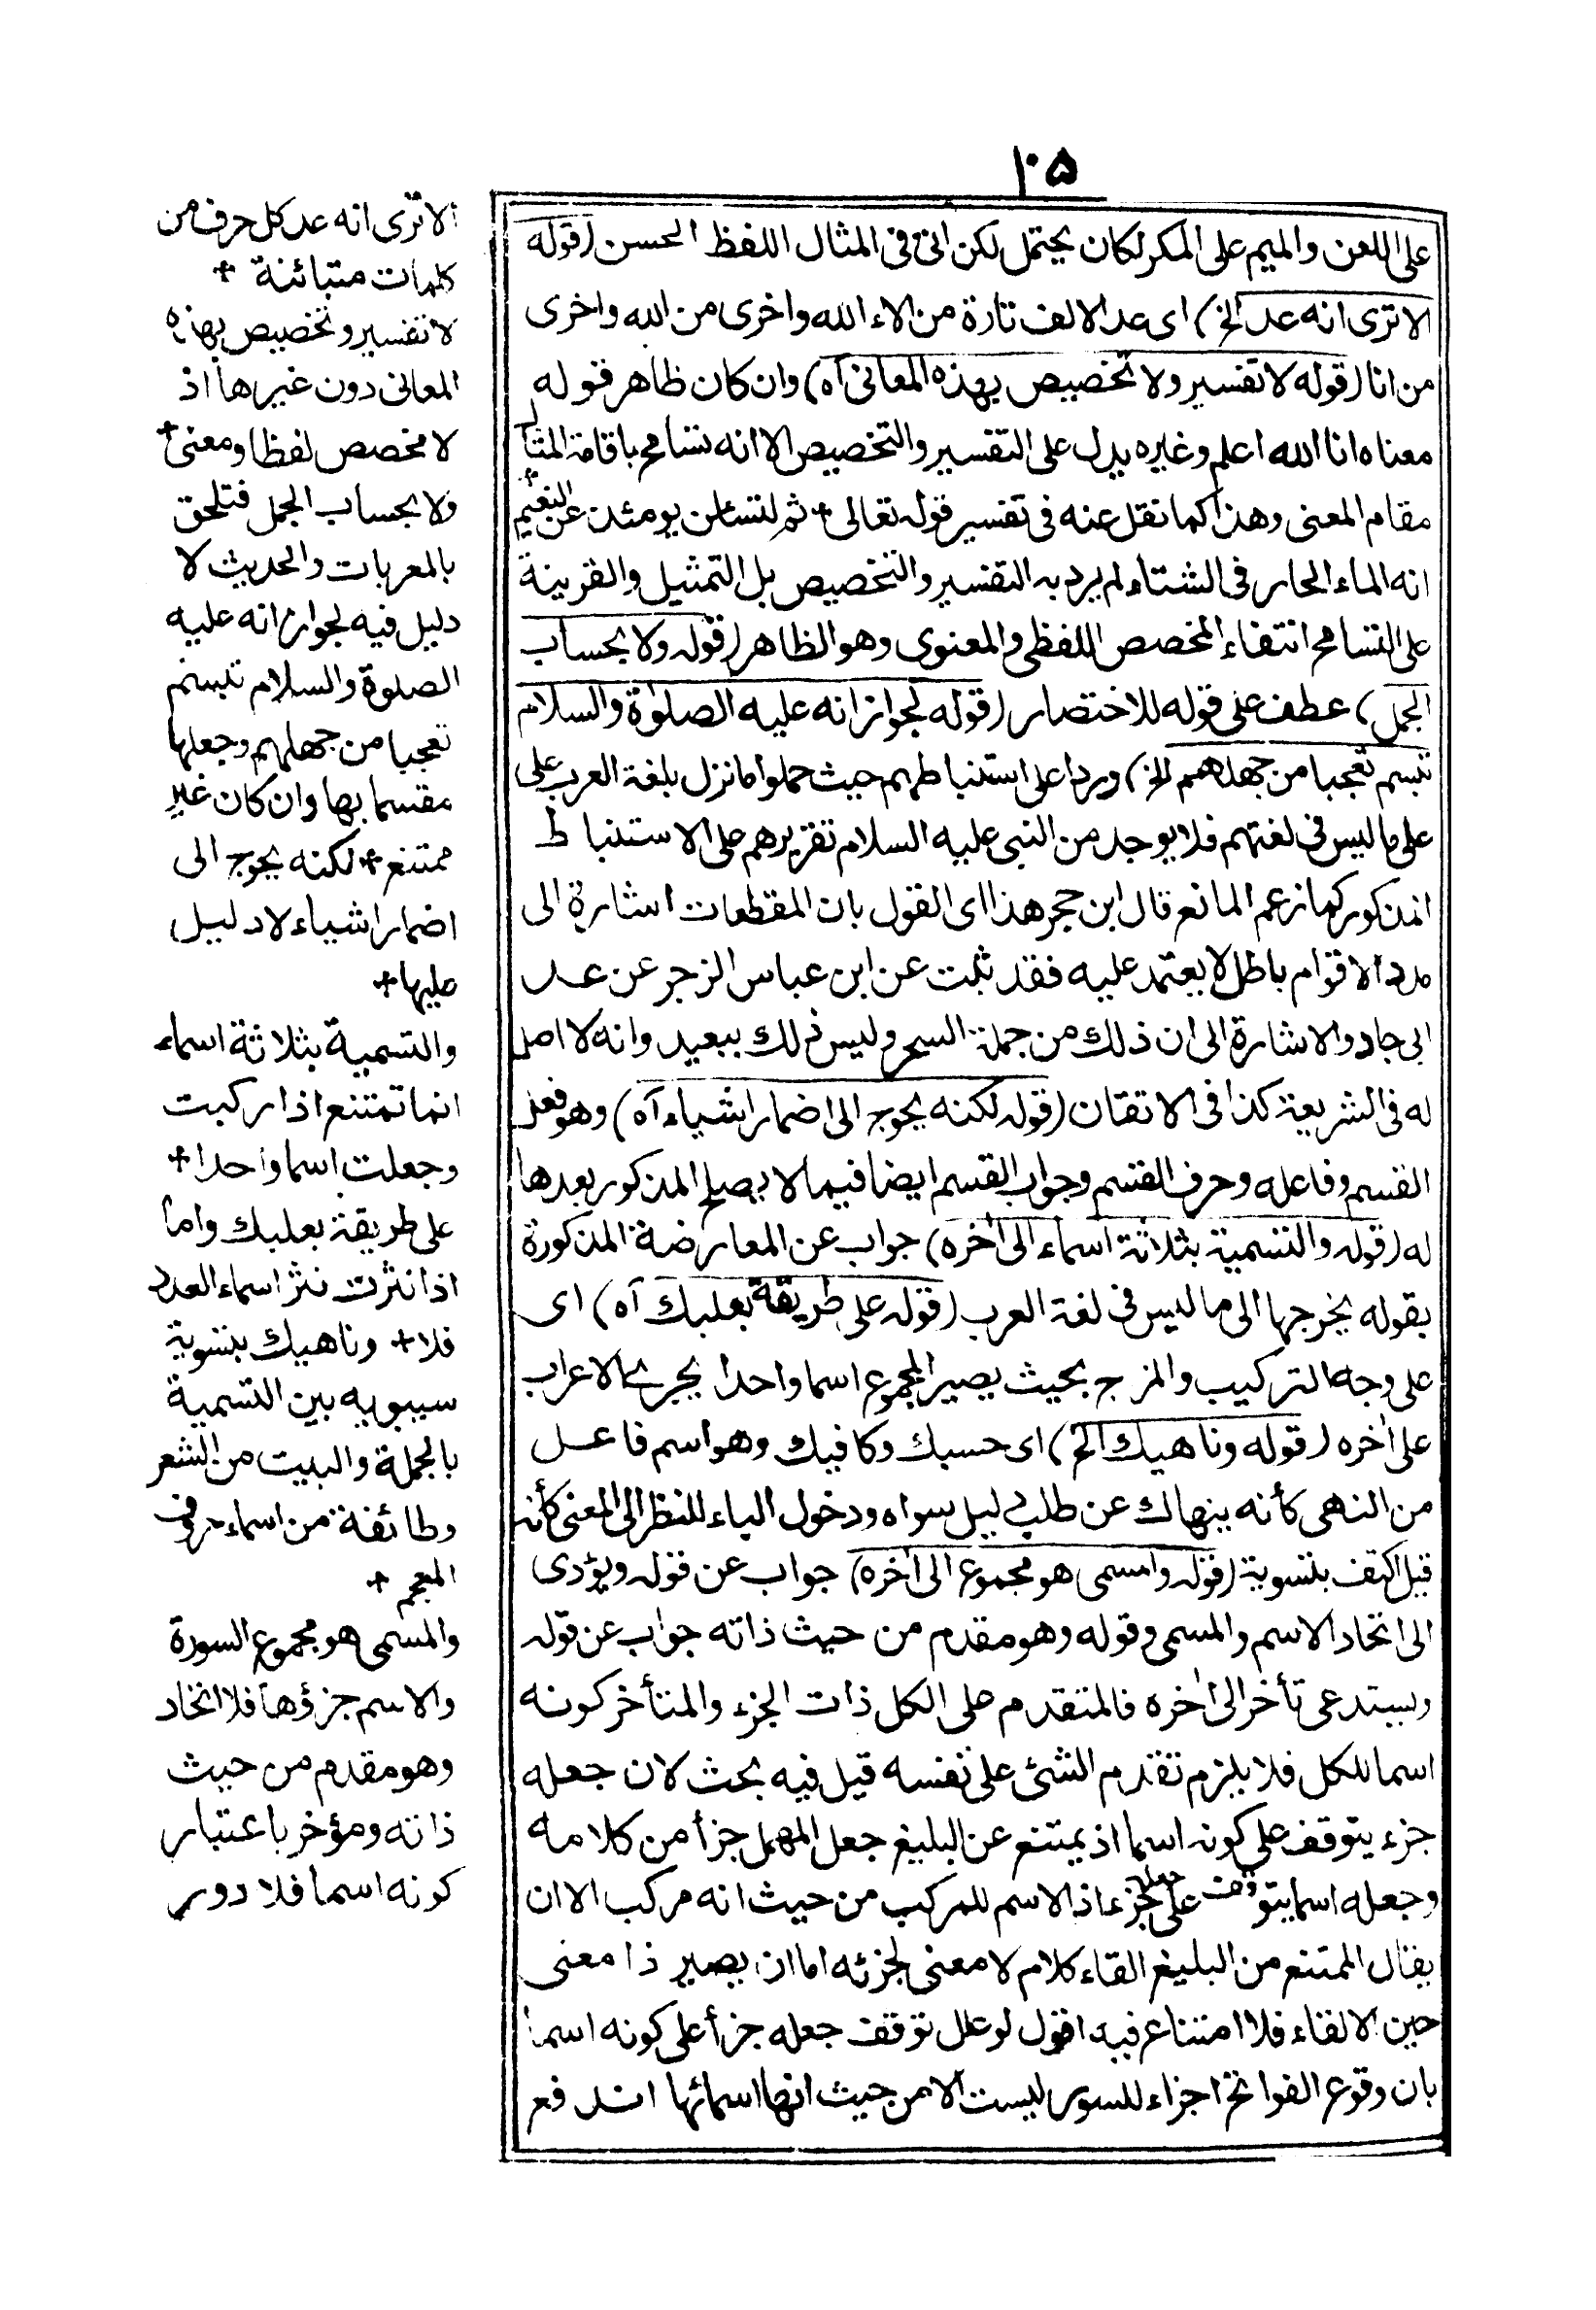 ١٠٥
على اللعن والميم على المكر لكان يحتمل لكن اتى فى المثال اللفظ الحسن (قوله
الا ترى انه عد الخ) اى عد الالف تارة من الاء الله واخرى من الله واخرى
من انا (قوله لا تفسير ولا تخصيص بهذه المعانى آه) وان كان ظاهر قوله
معناه انا الله اعلم وغيره يدل على التفسير والتخصيص الا انه تسامح باقامة المثال
مقام المعنى وهذا كما نقل عنه فى تفسير قوله تعالى + ثم لتسئلن يومئذ عن النعيم +
انه الماء الحار فى الشتاء لم يرد به التفسير والتخصيص بل التمثيل والقرينة
على التسامح انتفاء المخصص اللفظى والمعنوى وهو الظاهر (قوله ولا بحساب
الجمل) عطف على قوله للاختصار (قوله لجواز انه عليه الصلوة والسلام
تبسم تعجبا من جهلهم الخ) وردا على استنباطهم حيث حملوا ما نزل بلغة العرب على
على ما ليس فى لغتهم فلا يوجد من النبى عليه السلام تقريرهم على الاستنباط
المذكور كما زعم المانع قال ابن حجر هذا اى القول بان المقطعات اشارة الى
مدد الاقوام باطل لا يعتمد عليه فقد ثبت عن ابن عباس الزجر عن عد
ابى جاد والاشارة الى ان ذلك من جملة السحر وليس ذلك ببعيد وانه لا اصل
له فى الشريعة كذا فى الاتقان (قوله لكنه يحوج الى اضمار اشياء آه) وهو فعل
القسم وفاعله وحرف القسم وجواب القسم ايضا فيما لا يصلح المذكور بعدها
له (قوله والتسمية بثلاثة اسماء الى آخره) جواب عن المعارضة المذكورة
بقوله يخرجها الى ما ليس فى لغة العرب (قوله على طريقة بعلبك آه) اى
على وجه التركيب والمزج بحيث يصير المجموع اسما واحدا يجرى الاعراب
على آخره (قوله وناهيك الخ) اى حسبك وكافيك وهو اسم فاعل
من النهى كأنه ينهاك عن طلب دليل سواه ودخول الباء للنظر الى المعنى كأنه
قيل اكتف بتسوية (قوله والمسمى هو مجموع الى آخره) جواب عن قوله ويؤدى
الى اتحاد الاسم والمسمى وقوله وهو مقدم من حيث ذاته جواب عن قوله
ويستدعى تأخر الى آخره فالمتقدم على الكل ذات الجزء والمتأخر كونه
اسما للكل فلا يلزم تقدم الشئ على نفسه قيل فيه بحث لان جعله
جزء يتوقف على كونه اسما اذ يمتنع عن البليغ جعل المهمل جزأ من كلامه
وجعله اسما يتوقف على جعله جزءا اذ الاسم للمركب من حيث انه مركب الا ان
يقال الممتنع من البليغ القاء كلام لا معنى لجزئه اما ان يصير ذا معنى
حين الالقاء فلا امتناع فيه اقول لو علل توقف جعله جزأ على كونه اسما
بان وقوع الفواتح اجزاء للسور ليست الا من حيث انها اسمائها اندفع
الا ترى انه عد كل حرف من
كلمات متبائنة +
لا تفسير وتخصيص بهذه
المعانى دون غيرها اذ
لا مخصص لفظا ومعنى +
ولا بحساب الجمل فتلحق
بالمعربات والحديث لا
دليل فيه لجواز انه عليه
الصلوة والسلام تبسم
تعجبا من جهلهم وجعلها
مقسما بها وان كان غير
ممتنع + لكنه يحوج الى
اضمار اشياء لا دليل
عليها +
والتسمية بثلاثة اسماء
انما تمتنع اذا ركبت
وجعلت اسما واحدا +
على طريقة بعلبك واما
اذا نثرت نثر اسماء العدد
فلا + وناهيك بتسوية
سيبويه بين التسمية
بالجملة والبيت من الشعر
وطائفة من اسماء حروف
المعجم +
والمسمى هو مجموع السورة
والاسم جزؤها فلا اتحاد
وهو مقدم من حيث
ذاته ومؤخر باعتبار
كونه اسما فلا دور